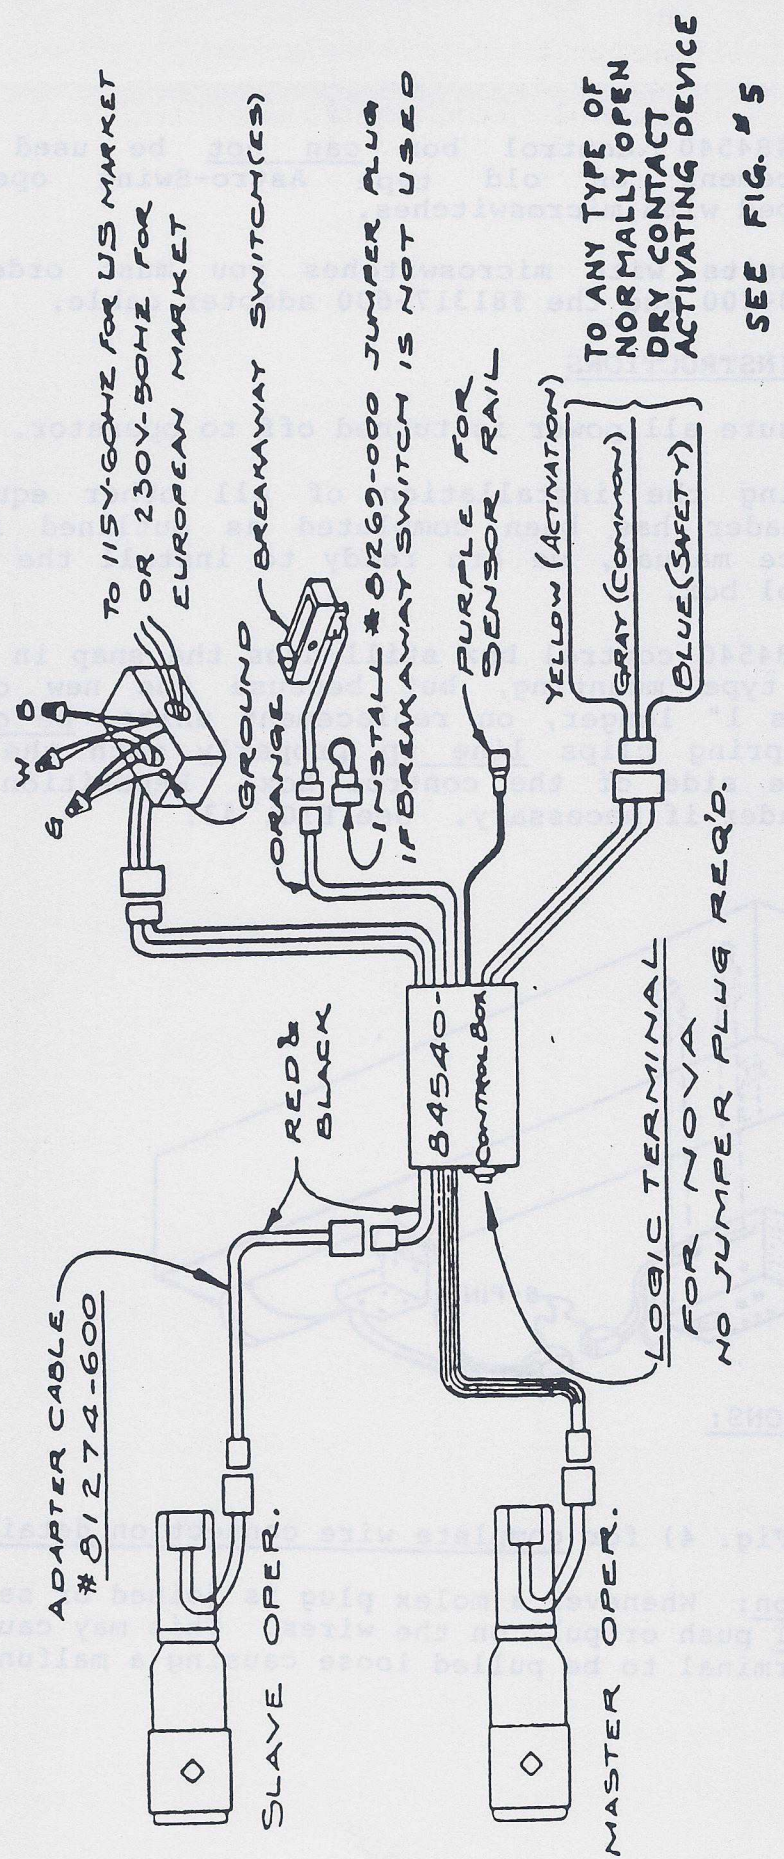 ADAPTER CABLE
#81274-600
SLAVE OPER.
MASTER OPER.
RED &
BLACK
84540-
CONTROL BOX
LOGIC TERMINAL
FOR NOVA
NO JUMPER PLUG REQ'D.
G
W
B
GROUND
TO 115V-60HZ FOR US MARKET
OR 230V-50HZ FOR
EUROPEAN MARKET
ORANGE
BREAKAWAY SWITCH(ES)
INSTALL #81269-000 JUMPER PLUG
IF BREAKAWAY SWITCH IS NOT USED
PURPLE FOR
SENSOR RAIL
YELLOW (ACTIVATION)
GRAY (COMMON)
BLUE (SAFETY)
TO ANY TYPE OF
NORMALLY OPEN
DRY CONTACT
ACTIVATING DEVICE
SEE FIG. #5